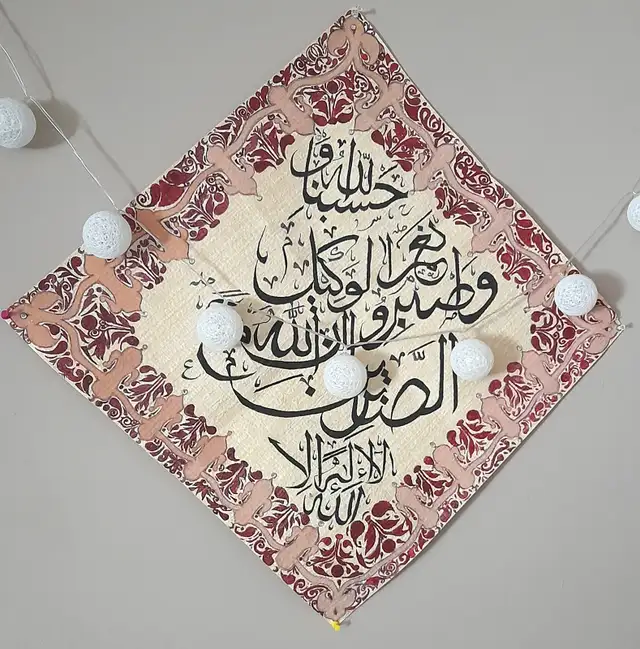 حسبنا الله و
نعم الوكيل
واصبروا ان الله مع
الصابرين
لا اله الا
الله